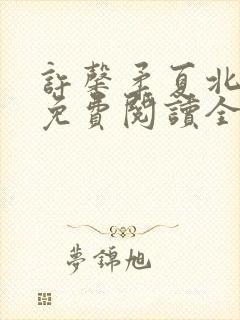 許馨矛夏北
免費閱讀全
夢錦旭